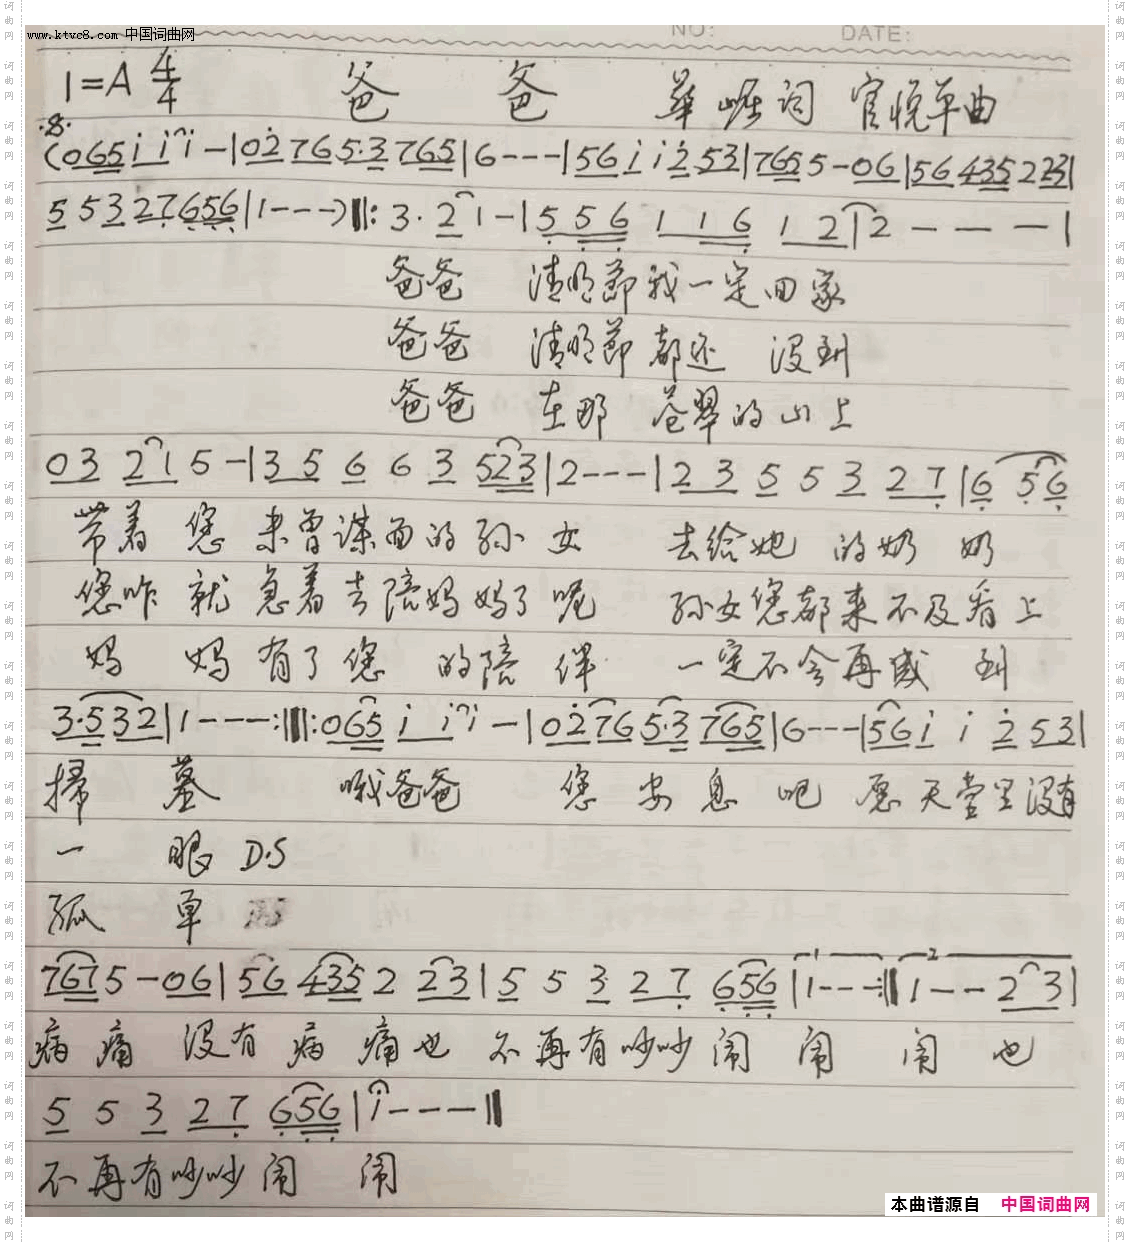 www.ktvc8.com 中国词曲网
NO: DATE:
1=A 4/4 爸 爸 华崛词 官悦单曲
(065 i i i -|02765·3 765|6---|56 i i 2 53|7655-06|56 435 2 23|
5 5 3 27 656|1---)‖: 3· 2 1 -|5 5 6 1 1 6 1 2|2 - - -|
爸爸 清明节我一定回家
爸爸 清明节都还 没到
爸爸 在那 苍翠的山上
03 21 5 -|3 5 6 6 3 523|2---|2 3 5 5 3 2 7|6 5 6
带着 您 未曾谋面的孙 女 去给她 的奶 奶
您咋 就 急着去陪妈妈了 呢 孙女您都来不及看上
妈 妈 有了 您 的陪 伴 一定不会再感 到
3·5 32|1---:‖‖:065 i i i -|0276 5·3 765|6---|56 i i 2 53|
扫 墓 哦爸爸 您 安 息 吧 愿 天堂里没有
一 眼 D.S
孤 单
767 5-06|56 435 2 23|5 5 3 2 7 656|1---:‖1--2 3|
病 痛 没有 病 痛也 不再有吵吵 闹 闹 闹 也
5 5 3 2 7 656|i---‖
不再有吵吵 闹 闹
本曲谱源自 中国词曲网